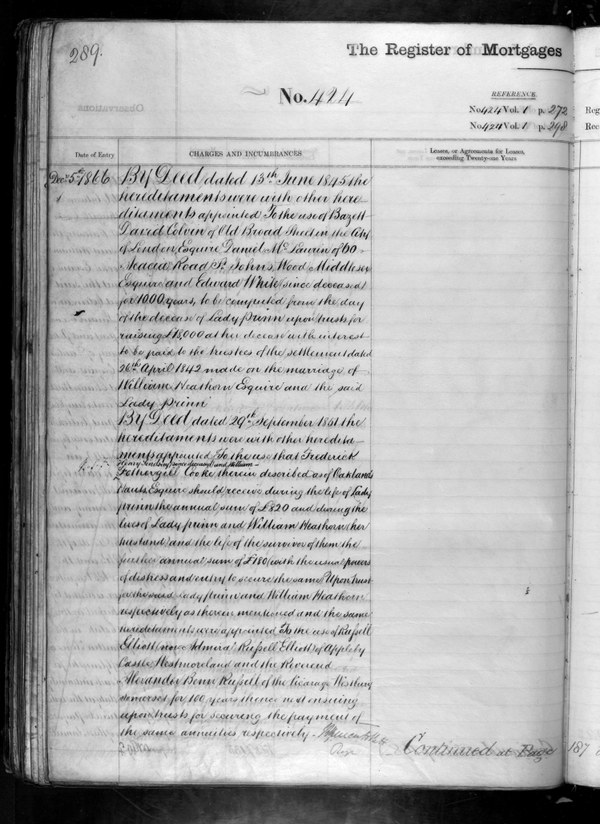 289.
The Register of Mortgages
No. 424
REFERENCE.
No. 424 Vol. 1 p. 272
No. 424 Vol. 1 p. 298
Date of Entry
CHARGES AND INCUMBRANCES
Leases, or Agreements for Leases,
exceeding Twenty-one Years
Decr 5th 1866
BY Deed dated 13th June 1845 the
hereditaments were with other here
ditaments appointed To the use of Bazett
David Colvin of Old Broad Street in the City
of London Esquire Daniel Mc Laurin of 60
Acacia Road St. Johns Wood Middlesex
Esquire and Edward White (since deceased)
for 1000 years, to be computed from the day
of the decease of Lady Prinn upon trusts for
raising £18,000 at her decease with interest
to be paid to the trustees of the settlement dated
26th April 1842 made on the marriage of
William Heathorn Esquire and the said
Lady Prinn
BY Deed dated 29th September 1851 the
hereditaments were with other heredita
ments appointed To the use that Frederick
and William
Fothergill Cooke therein described as of Oaklands
Hants Esquire should receive during the life of Lady
Prinn the annual sum of £820 and during the
lives of Lady Prinn and William Heathorn her
husband and the life of the survivor of them the
further annual sum of £180 with the usual powers
of distress and entry to secure the same Upon trust
for the said Lady Prinn and William Heathorn
respectively as therein mentioned and the same
hereditaments were appointed To the use of Russell
Elliott (since Admiral Russell Elliott) of Appleby
Castle Westmoreland and the Reverend
Alexander Benn Russell of the Vicarage Westbury
Somerset for 100 years thence next ensuing
upon trusts for securing the payment of
the same annuities respectively.
Regr
Continued at Page 187